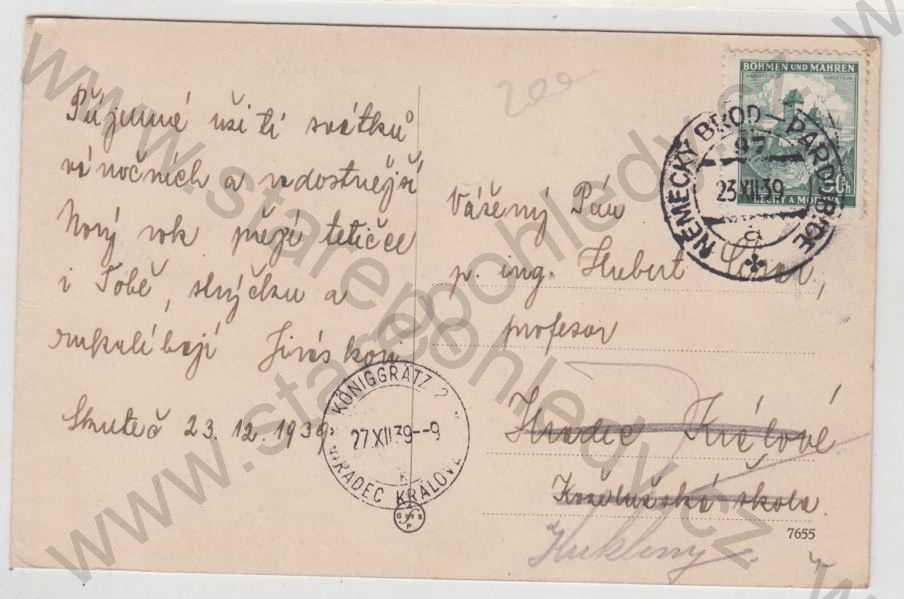 Příjemné užití svátků
vánočních a radostnější
Nový rok přejí tetičce
i Tobě, strýčku a
Jiráskovi
Skuteč 23.12.1939
200
Vážený Pán
p. ing. Hubert
profesor
Hradec Králové
Koželužská škola
Kukleny
BÖHMEN UND MÄHREN
ČECHY A MORAVA
NĚMECKÝ BROD - PARDUBICE
97
23 XII 39
KÖNIGGRÄTZ 2
27 XII 39 --9
HRADEC KRÁLOVÉ
7655
www.starepohledy.cz